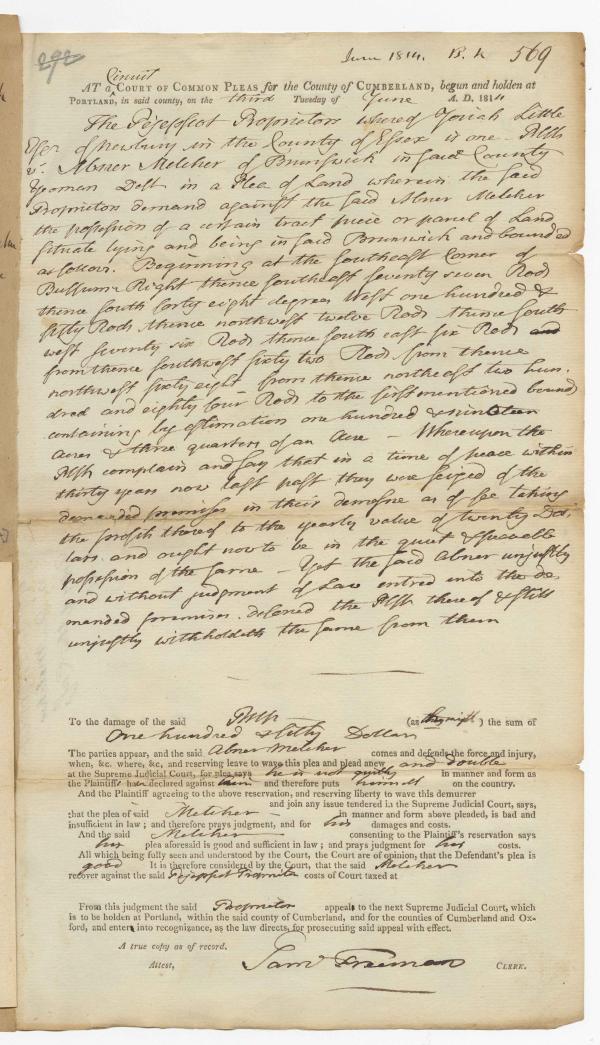 292
June 1814. B. k 569
Circuit
AT a COURT OF COMMON PLEAS for the County of CUMBERLAND, begun and holden at
PORTLAND, in said county, on the third Tuesday of June A. D. 1814
The Pejepscot Proprietors whereof Josiah Little
Esqr of Newbury in the County of Essex is one Plffs
v. Abner Melcher of Brunswick in said County
Yeoman Deft in a Plea of Land wherein the said
Proprietors demand against the said Abner Melcher
the possession of a certain tract piece or parcel of Land
situate lying and being in said Brunswick and bounded
as follows. Beginning at the Southeast Corner of
Right thence southeast seventy seven Rods
thence south forty eight degrees West one hundred &
fifty Rods thence northwest twelve Rods thence South
west seventy six Rods thence south east six Rods and
from thence southwest sixty two Rods from thence
northwest sixty eight from thence northeast two hun.
dred and eighty four Rods to the first mentioned bound
containing by estimation one hundred & nineteen
Acres & three quarters of an Acre – Whereupon the
Plffs complain and say that in a time of peace within
thirty years now last past they were seized of the
demanded premises in their demesne as of fee taking
the profits thereof to the yearly value of twenty Dol
lars and ought now to be in the quiet & peaceable
possession of the same Yet the said Abner unjustly
and without judgment of Law entred into the de
manded premises deforced the Plffs thereof & still
unjustly withholdeth the same from them
To the damage of the said Plffs (as they saith) the sum of
One hundred & fifty Dollars
The parties appear, and the said Abner Melcher comes and defends the force and injury,
when, &c. where, &c, and reserving leave to wave this plea and plead anew and double
at the Supreme Judicial Court, for plea says he is not guilty in manner and form as
the Plaintiffs had declared against him and therefore puts himself on the country.
And the Plaintiff agreeing to the above reservation, and reserving liberty to wave this demurrer
and join any issue tendered in the Supreme Judicial Court, says,
that the plea of said Melcher in manner and form above pleaded, is bad and
insufficient in law; and therefore prays judgment, and for his damages and costs.
And the said Melcher consenting to the Plaintiff's reservation says
his plea aforesaid is good and sufficient in law; and prays judgment for his costs.
All which being fully seen and understood by the Court, the Court are of opinion, that the Defendant's plea is
good It is therefore considered by the Court, that the said Melcher
recover against the said Pejepscot Proprietors costs of Court taxed at
From this judgment the said Proprietors appeals to the next Supreme Judicial Court, which
is to be holden at Portland, within the said county of Cumberland, and for the counties of Cumberland and Ox-
ford, and enters into recognizance, as the law directs, for prosecuting said appeal with effect.
A true copy as of record.
Attest, Saml Freeman CLERK.